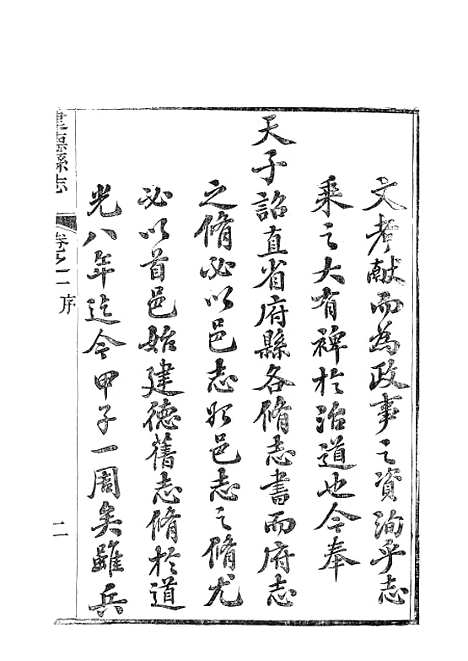 文考献而為政事之資洵乎志
乘之大有裨於治道也今奉
天子詔直省府縣各脩志書而府志
之脩必以邑志始邑志之脩尤
必以首邑始建德舊志脩於道
光八年迄今甲子一周矣雖兵
建德縣志
卷之一
序
二